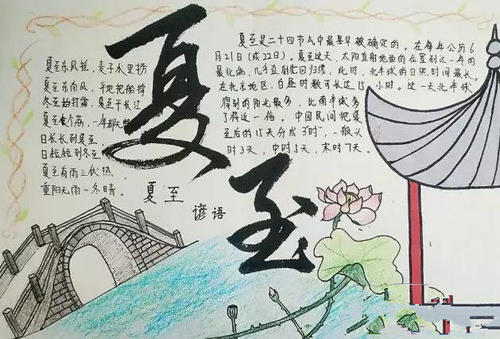 夏至
夏至东风摇，麦子水里捞
夏至东南风，平地把船撑
冬至始打霜，夏至干长江
夏至食个荔，一年都无
日长长到夏至
日短短到冬至
夏至有雨三伏热，
重阳无雨一冬晴。
夏至
谚语
夏至是二十四节气中最早被确定的。在每年公历6
月21日(或22日)。夏至这天，太阳直射地面的位置到达一年的
最北端，几乎直射北回归线，此时，北半球的日照时间最长，
在北京地区，白昼时数可长达15小时。这一天北半球
得到的阳光最多，比南半球多
了将近一倍。中国民间把夏
至后的15天分成3"时"，一般头
时3天，中时5天，末时7天。